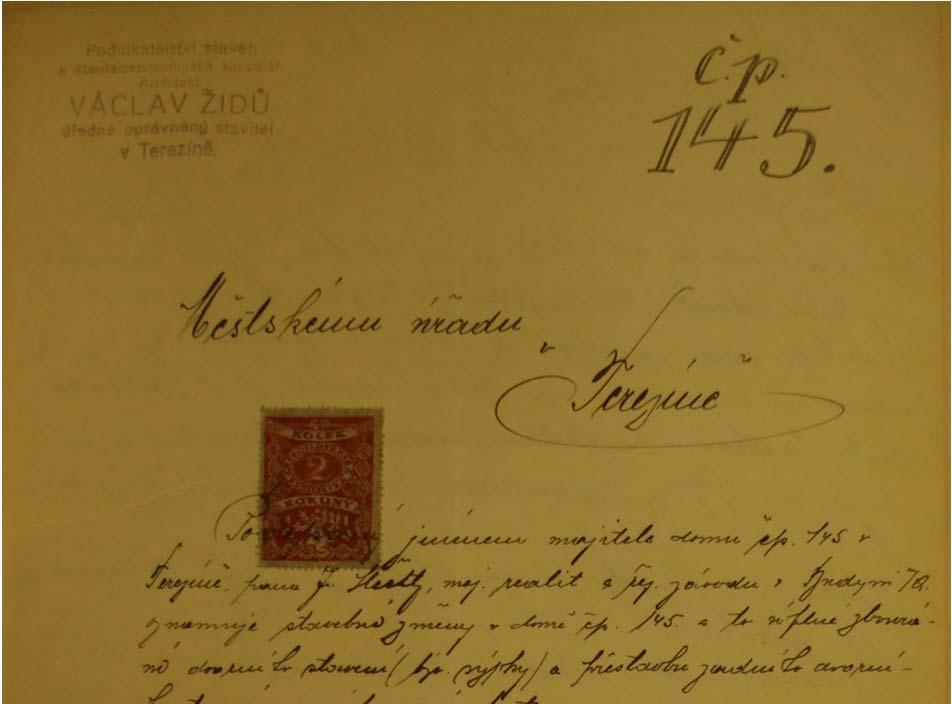 Podnikatelství staveb
a stavitelsko-technická kancelář
Architekt
VÁCLAV ŽIDŮ
úředně oprávněný stavitel
v Terezíně.
č.p.
145.
Městskému úřadu
v
Terezíně
KOLEK
2
KORUNY
jménem majitele domu čp. 145 v
Terezíně, pana J. maj. realit a
oznamuje stavební změny v domě čp. 145. a to úplné zbourá-
ní dvorního stavení (bý. sýpky) a přestavbu zadního dvorní-